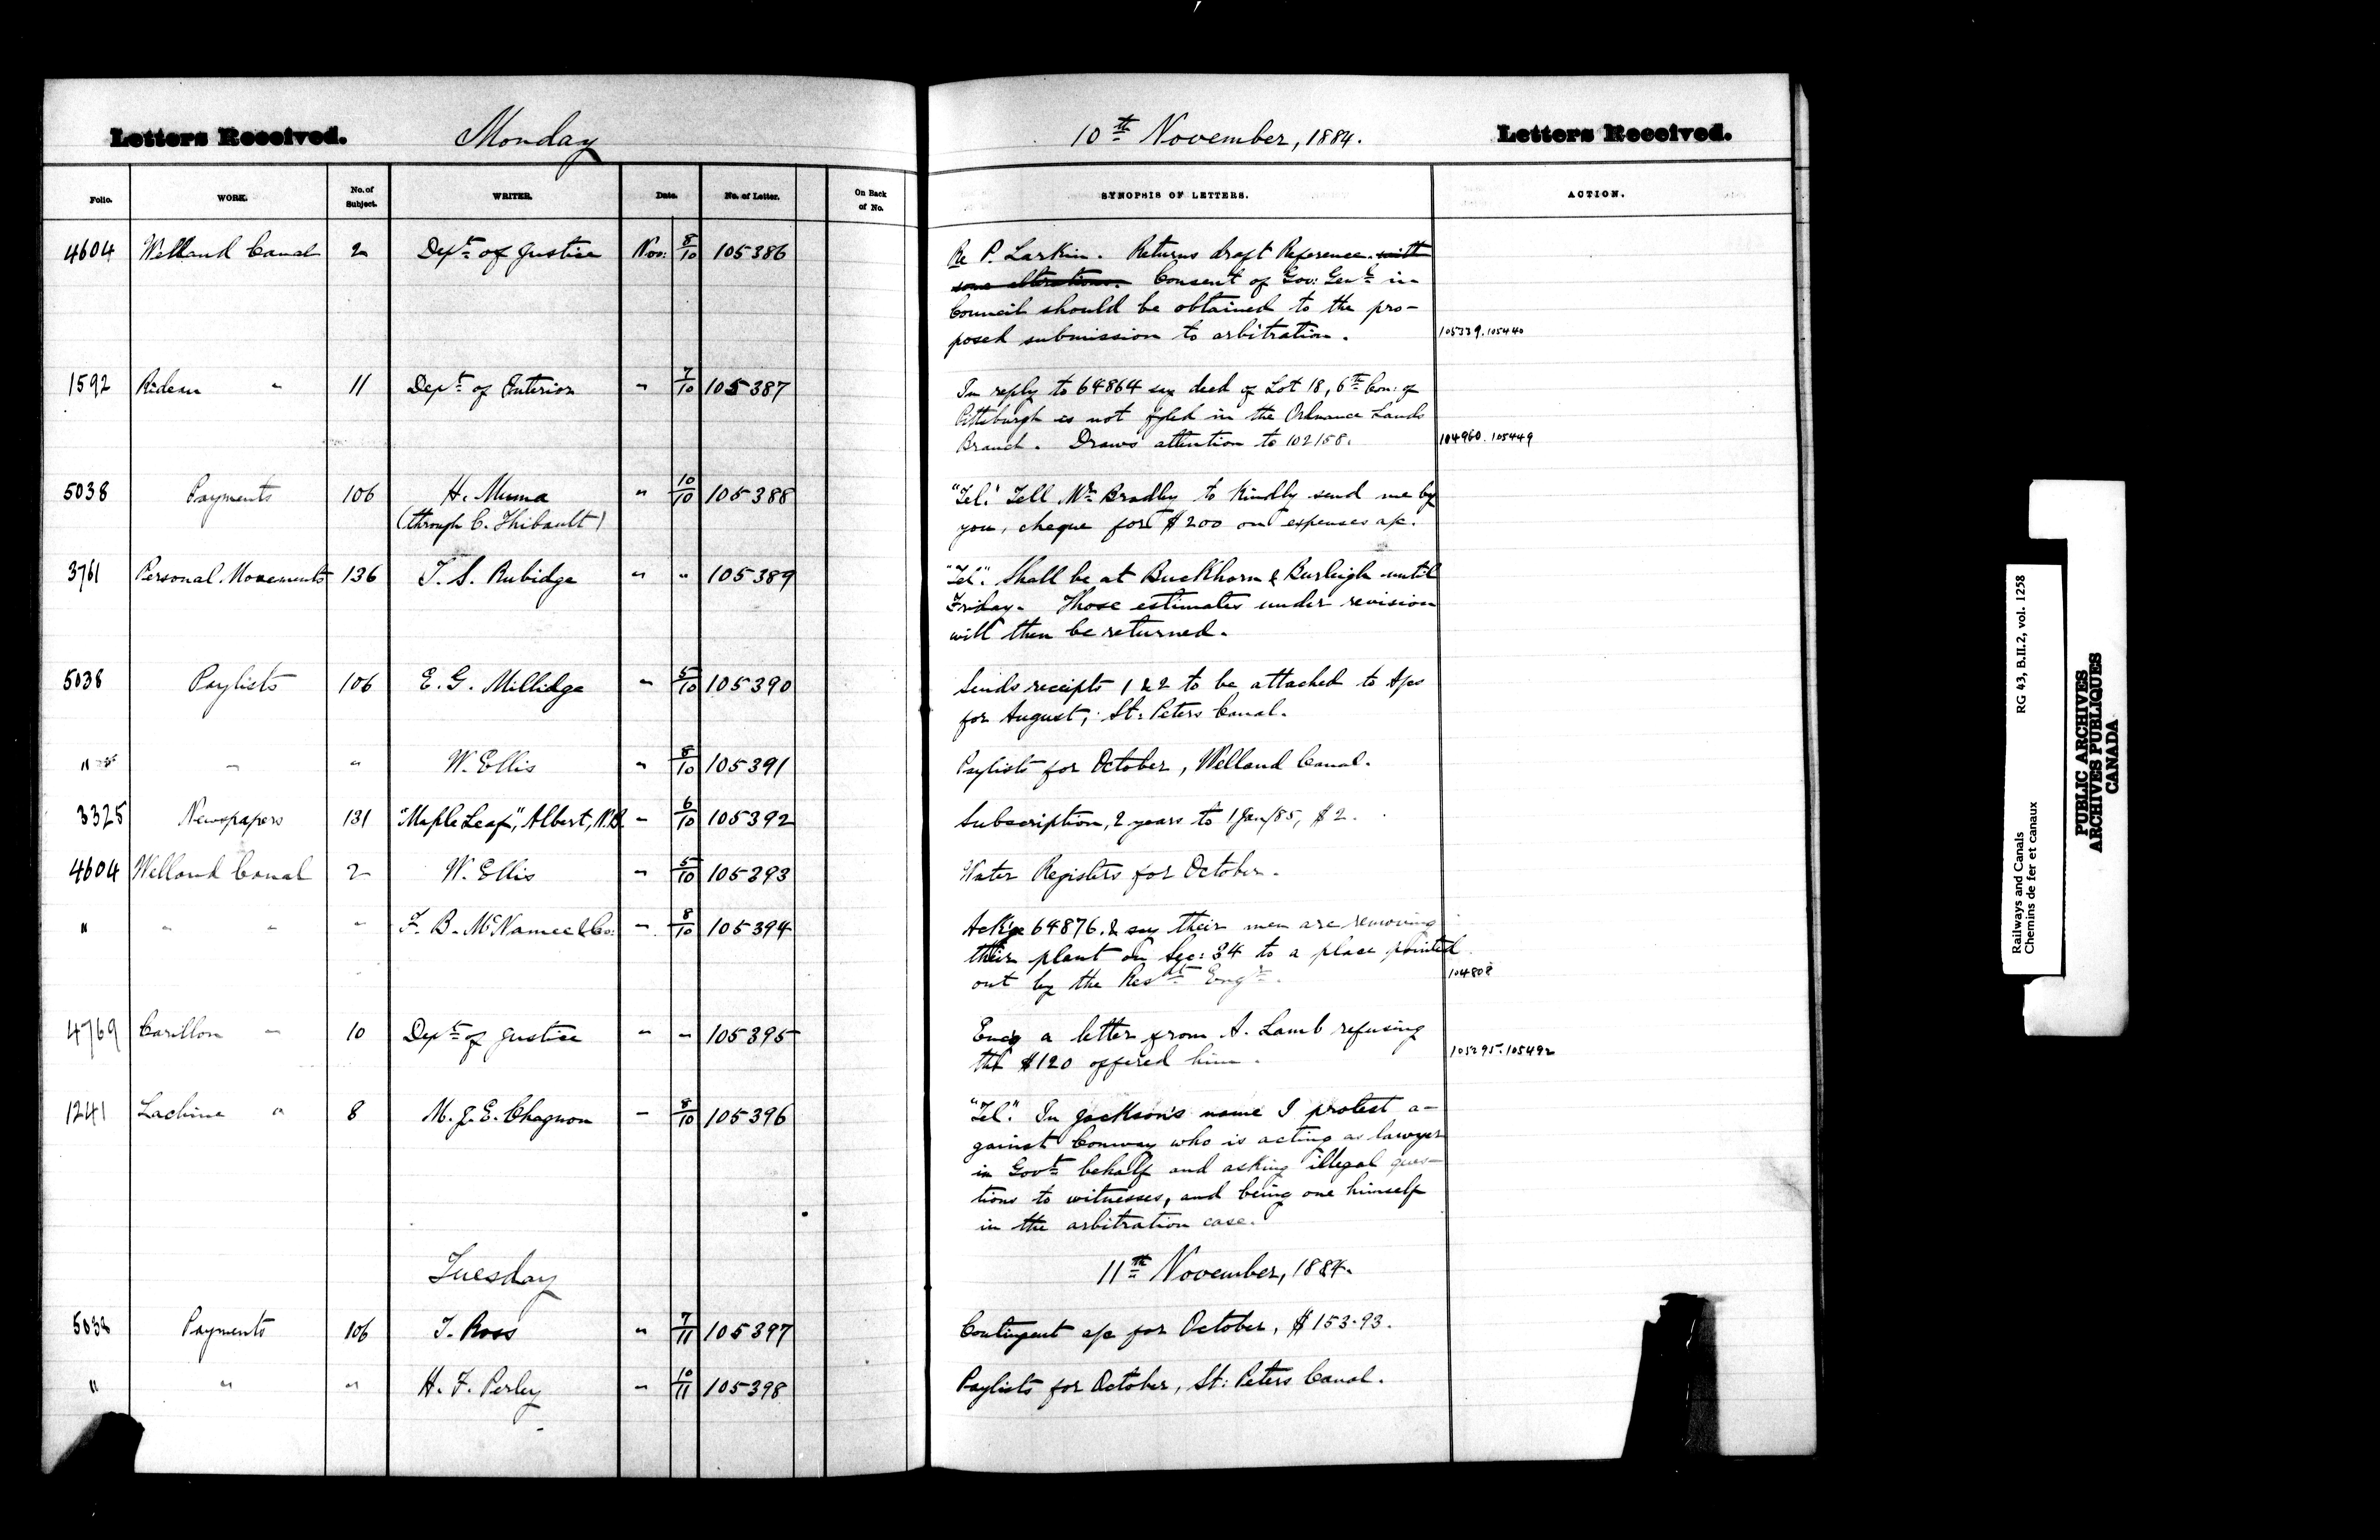 Letters Received. Monday
Folio. WORK. No. of Subject. WRITER. Date. No. of Letter. On Back of No.
4604 Welland Canal 2 Dept of Justice Nov: 8/10 105386
1592 Rideau " 11 Dept of Interior " 7/10 105387
5038 Payments 106 H. Muma " 10/10 105388
(through C. Thibault)
3761 Personal Movements 136 T. S. Rubidge " " 105389
5038 Paylists 106 E. G. Millidge " 5/10 105390
" " " W. Ellis " 8/10 105391
3325 Newspapers 131 "Maple Leaf", Albert, N.B. " 6/10 105392
4604 Welland Canal 2 W. Ellis " 5/10 105393
" " " " F. B. McNamee & Co: " 8/10 105394
4769 Carillon " 10 Dept of Justice " " 105395
1241 Lachine " 8 M. J. E. Chagnon " 8/10 105396
Tuesday
5038 Payments 106 T. Ross " 7/11 105397
" " " H. F. Perley " 10/11 105398
10th November, 1884. Letters Received.
SYNOPSIS OF LETTERS. ACTION.
Re P. Larkin. Returns draft Reference. with
some alterations. Consent of Gov: Genl in
Council should be obtained to the pro-
posed submission to arbitration. 105339. 105440
In reply to 64864 say deed of Lot 18, 6th Con: of
Pittsburgh is not fyled in the Ordnance Lands
Branch. Draws attention to 102158. 104960. 105449
"Tel". Tell Mr Bradley to kindly send me by
you, cheque for $200 on expenses a/c.
"Tel". Shall be at Buckhorn & Burleigh until
Friday. Those estimates under revision
will then be returned.
Sends receipts 1 & 2 to be attached to a/cs
for August, St: Peters Canal.
Paylists for October, Welland Canal.
Subscription, 2 years to 1 Jan/85, $2.
Water Registers for October.
Ackge 64876. & say their men are removing
their plant on Sec: 34 to a place pointed
out by the Resdt Engr. 104808
Encg a letter from A. Lamb refusing
the $120 offered him. 105295. 105492
"Tel". In Jackson's name I protest a-
gainst Conway who is acting as lawyer
in Govt behalf and asking illegal ques-
tions to witnesses, and being one himself
in the arbitration case.
11th November, 1884.
Contingent a/c for October, $153.93.
Paylists for October, St: Peters Canal.
Railways and Canals RG 43, B.II.2, vol. 1258
Chemins de fer et canaux
PUBLIC ARCHIVES
ARCHIVES PUBLIQUES
CANADA